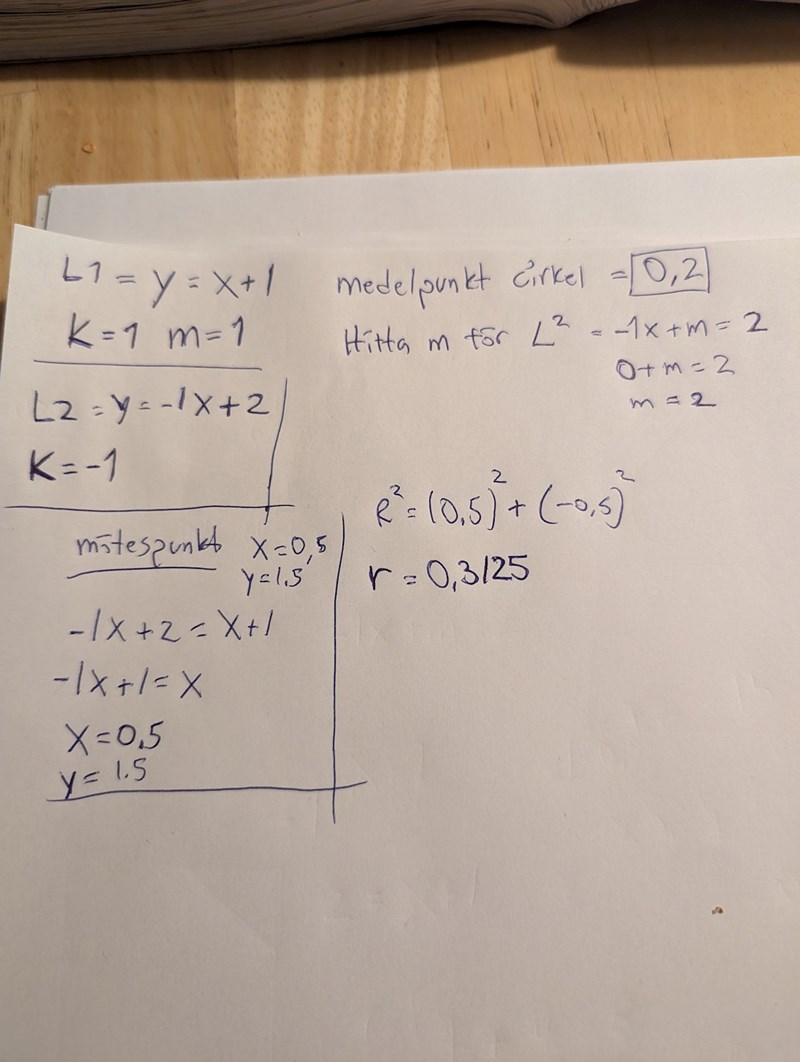 L1 = y = x+1
K=1 m=1
L2 = y = -1x+2
K=-1
mötespunkt x=0,5
y=1.5
-1x+2 = x+1
-1x+1= x
x=0.5
y= 1.5
medelpunkt cirkel = 0,2
Hitta m för L² = -1x+m = 2
0+m=2
m=2
R²= (0,5)²+ (-0,5)²
r = 0,3125